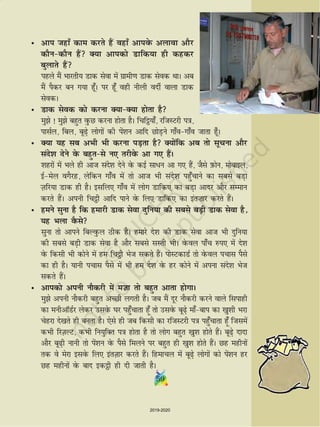 • आप जहाँ काम करते हैं वहाँ आपके अलावा और
कौन-कौन हैं? क्या आपको डाकिया ही कहकर
बुलाते हैं?
पहले मैं भारतीय डाक सेवा में ग्रामीण डाक सेवक था। अब
मैं पैकर बन गया हूँ। पर हूँ वही नीली वर्दी वाला डाक
सेवक।
• डाक सेवक को करना क्या-क्या होता है?
मुझे! मुझे बहुत कुछ करना होता है। चिट्ठियाँ, रजिस्टरी पत्र,
पार्सल, बिल, बूढ़े लोगों की पेंशन आदि छोड़ने गाँव-गाँव जाता हूँ।
• क्या यह सब अभी भी करना पड़ता है? क्योंकि अब तो सूचना और
संदेश देने के बहुत-से नए तरीके आ गए हैं।
शहरों में भले ही आज संदेश देने के कई साधन आ गए हैं, जैसे फ़ोन, मोबाइल,
ई-मेल वगैरह, लेकिन गाँव में तो आज भी संदेश पहुँचाने का सबसे बड़ा
ज़रिया डाक ही है। इसलिए गाँव में लोग डाकिए का बड़ा आदर और सम्मान
करते हैं। अपनी चिट्ठी आदि पाने के लिए डाकिए का इंतज़ार करते हैं।
• हमने सुना है कि हमारी डाक सेवा दुनिया की सबसे बड़ी डाक सेवा है,
यह भला कैसे?
सुना तो आपने बिल्कुल ठीक है। हमारे देश की डाक सेवा आज भी दुनिया
की सबसे बड़ी डाक सेवा है और सबसे सस्ती भी। केवल पाँच रुपए में देश
के किसी भी कोने में हम चिट्ठी भेज सकते हैं। पोस्टकार्ड तो केवल पचास पैसे
का ही है। यानी पचास पैसे में भी हम देश के हर कोने में अपना संदेश भेज
सकते हैं।
• आपको अपनी नौकरी में मज़ा तो बहुत आता होगा।
मुझे अपनी नौकरी बहुत अच्छी लगती है। जब मैं दूर नौकरी करने वाले सिपाही
का मनीऑर्डर लेकर उसके घर पहुँचाता हूँ तो उसके बूढ़े माँ-बाप का खुशी भरा
चेहरा देखते ही बनता है। ऐसे ही जब किसी का रजिस्टरी पत्र पहुँचाता हूँ जिसमें
कभी रिज़ल्ट, कभी नियुक्ति पत्र होता है तो लोग बहुत खुश होते हैं। बूढ़े दादा
और बूढ़ी नानी तो पेंशन के पैसे मिलने पर बहुत ही खुश होते हैं। छह महीनों
तक वे मेरा इसके लिए इंतज़ार करते हैं। हिमाचल में बूढ़े लोगों को पेंशन हर
छह महीनों के बाद इकट्ठी ही दी जाती है।
59
2019-2020